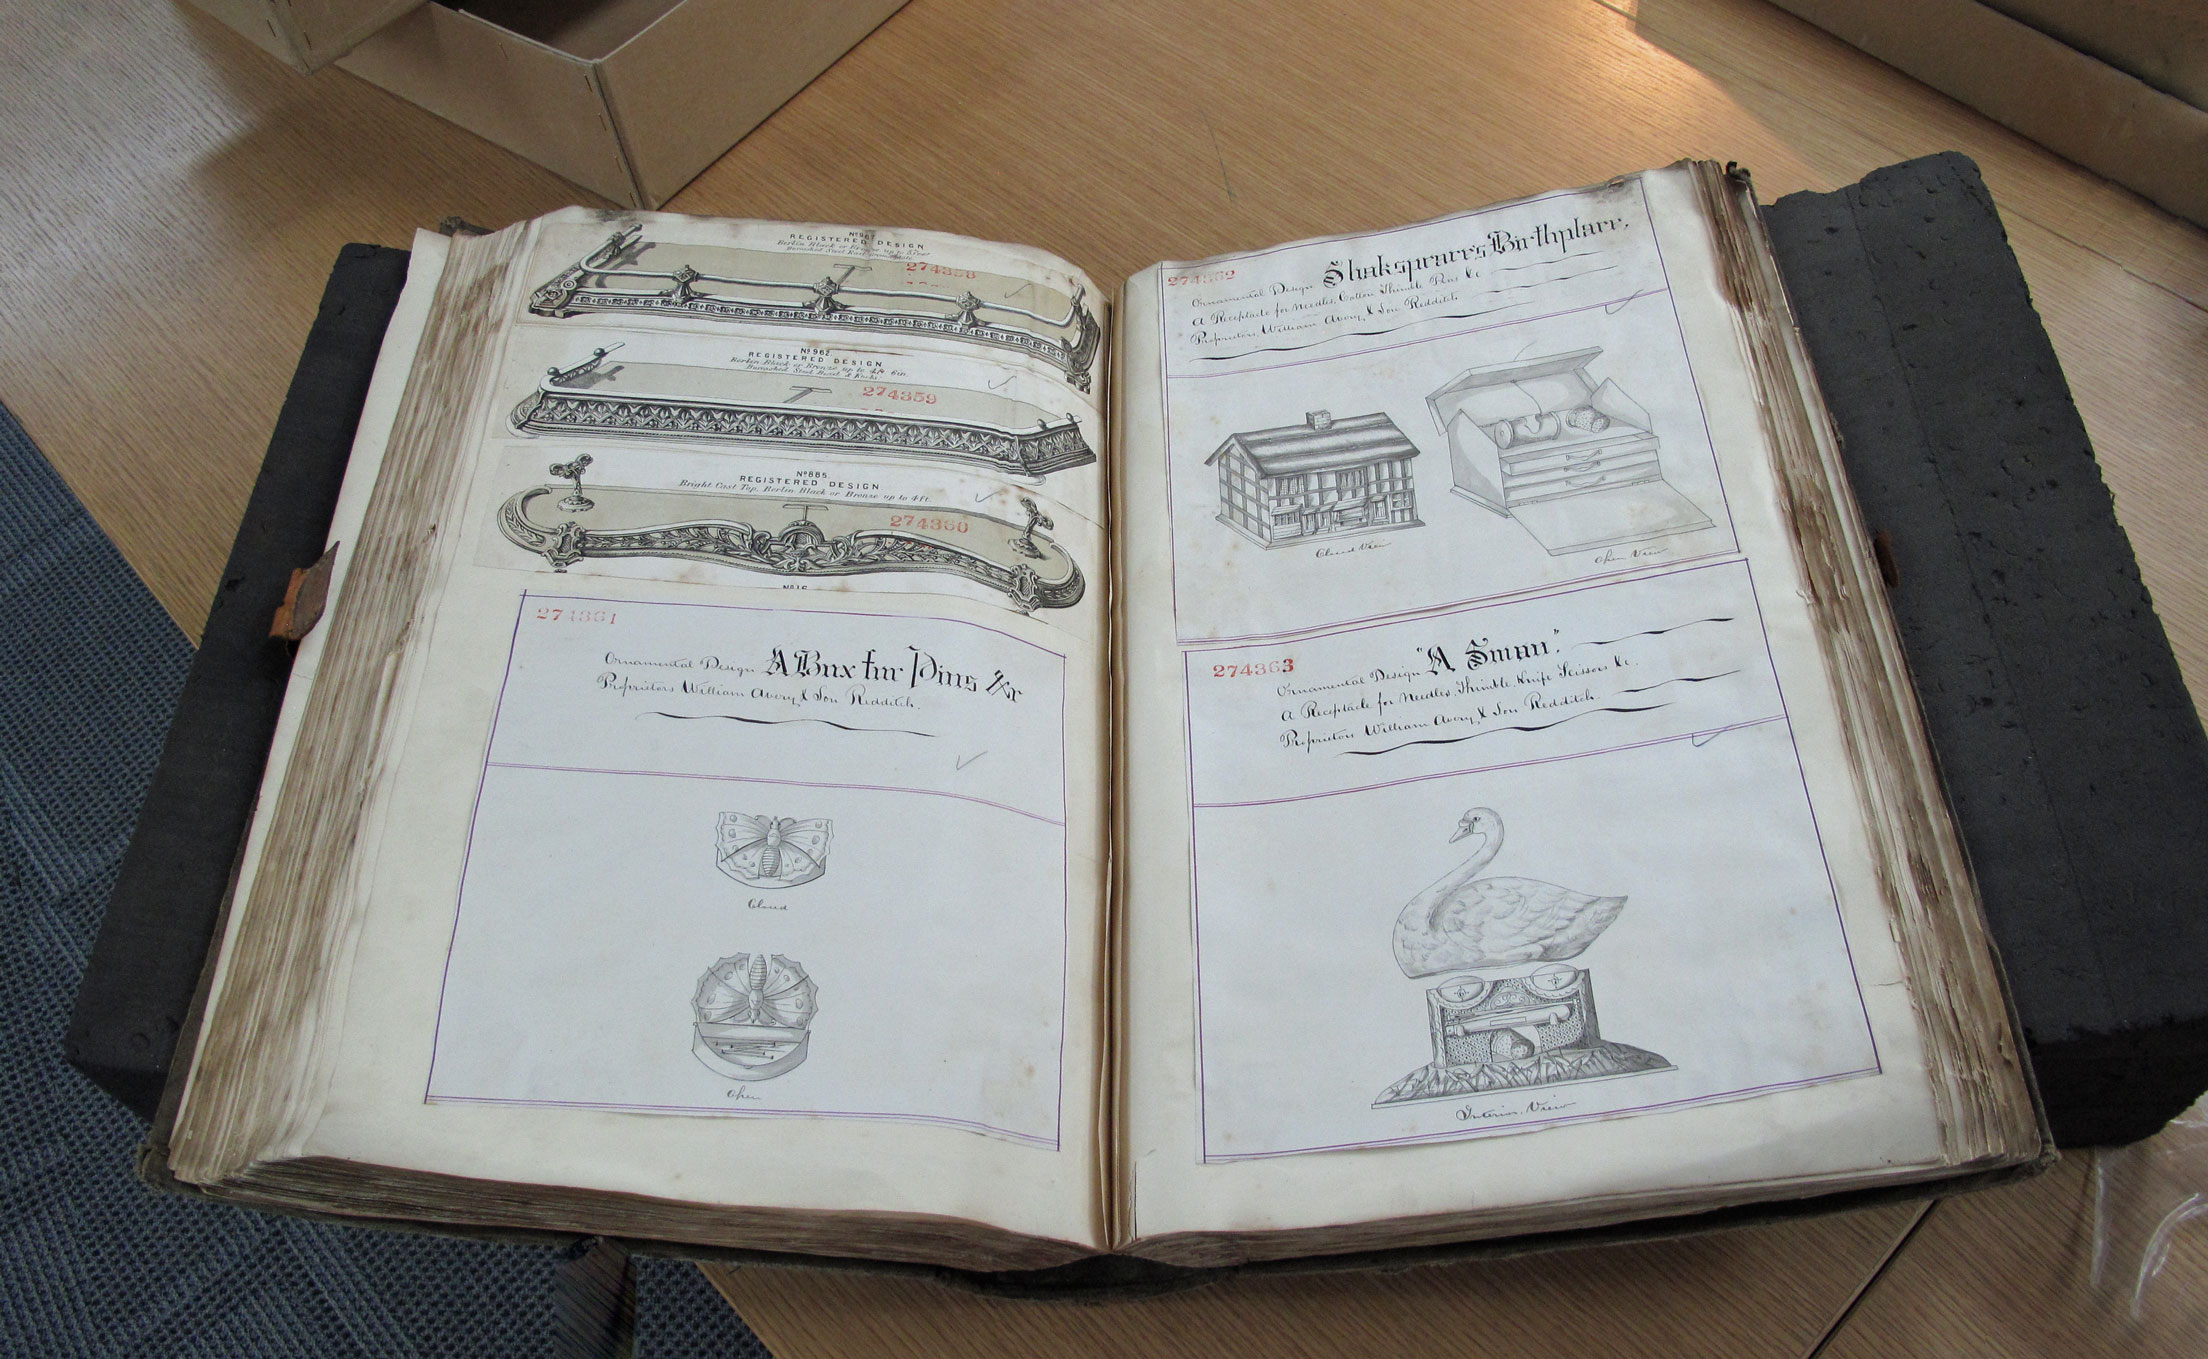 REGISTERED DESIGN
Berlin Black or Bronze up to 5 feet
274358
Nº 962.
REGISTERED DESIGN
Berlin Black or Bronze up to 4 ft 6 in.
Burnished Steel Bead & Knobs
274359
Nº 885.
REGISTERED DESIGN
Bright Cast Top, Berlin Black or Bronze up to 4 ft.
274360
Nº 16
274361
Ornamental Design A Box for Pins &c
Proprietors William Avery & Son Redditch.
Closed
Open
274362
Ornamental Design Shakspeare's Birthplace,
A Receptacle for Needles, Cotton Thimble Pins &c
Proprietors, William Avery & Son Redditch
Closed View
Open View
274363
Ornamental Design "A Swan."
A Receptacle for Needles, Thimble, Knife Scissors &c.
Proprietors William Avery & Son Redditch.
Interior View